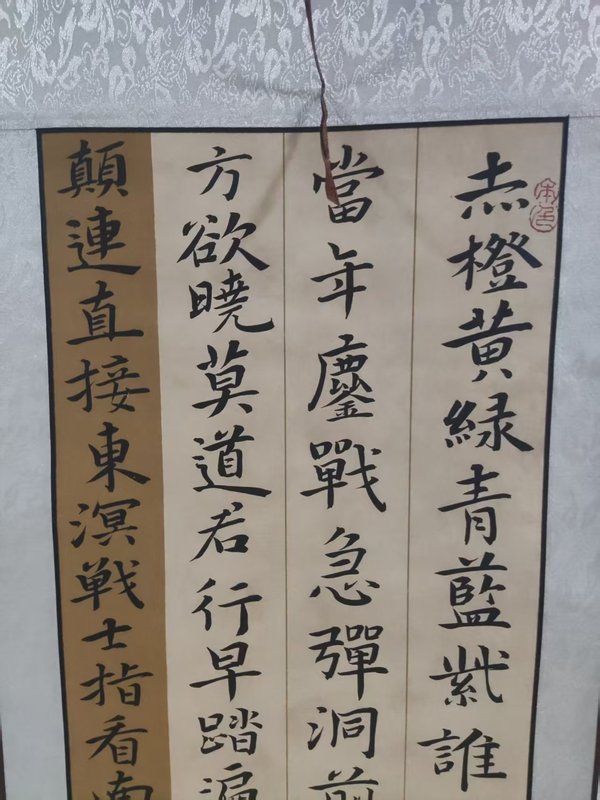 赤橙黄緑青藍紫誰
當年鏖戰急彈洞前
方欲曉莫道君行早踏遍
顛連直接東溟戦士指看南